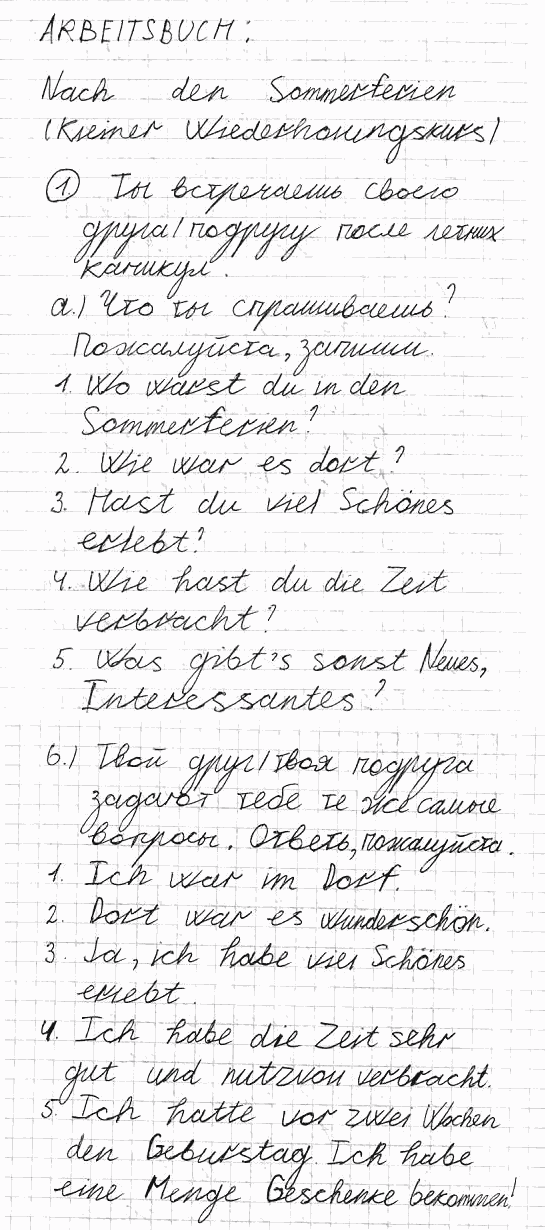 ARBEITSBUCH:
Nach den Sommerferien
(Kleiner Wiederholungskurs)
① Ты встречаешь своего
друга/подругу после летних
каникул.
а.) Что ты спрашиваешь?
Пожалуйста, запиши.
1. Wo warst du in den
Sommerferien?
2. Wie war es dort?
3. Hast du viel Schönes
erlebt?
4. Wie hast du die Zeit
verbracht?
5. Was gibt's sonst Neues,
Interessantes?
б.) Твой друг/твоя подруга
задают тебе те же самые
вопросы. Ответь, пожалуйста.
1. Ich war im Dorf.
2. Dort war es wunderschön.
3. Ja, ich habe viel Schönes
erlebt.
4. Ich habe die Zeit sehr
gut und nutzvoll verbracht.
5. Ich hatte vor zwei Wochen
den Geburstag. Ich habe
eine Menge Geschenke bekommen!